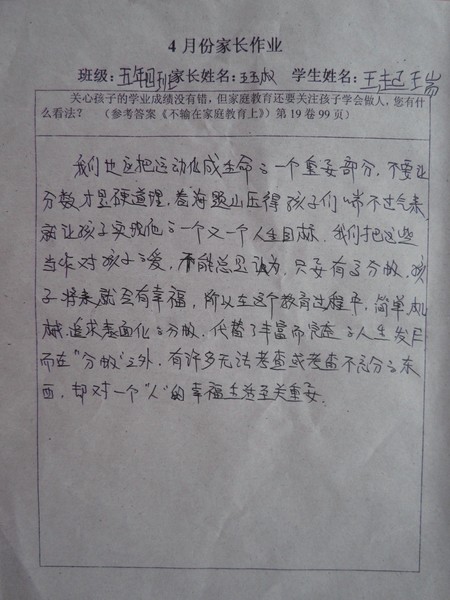 4月份家长作业
班级：五年四班 家长姓名：王 学生姓名：王起瑞
关心孩子的学业成绩没有错，但家庭教育还要关注孩子学会做人，您有什
么看法？（参考答案《不输在家庭教育上》）第19卷99页）
我们也应把运动化成生命的一个重要部分，不要让
分数才是硬道理，卷海题山压得孩子们喘不过气来
就让孩子实现他的一个又一个人生目标，我们把这些
当作对孩子的爱，不能总是认为，只要有了分数，孩
子将来就会有幸福，所以在这个教育过程中，简单机
械，追求表面化的分数，代替了丰富而完整的人生发展
而在"分数"之外，有许多无法考查或考查不充分的东
西，却对一个"人"的幸福生活至关重要。